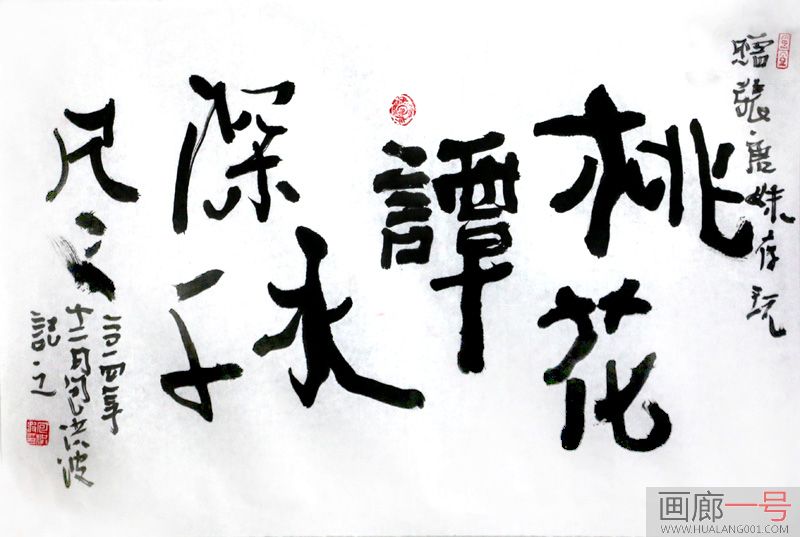 贈張唐妹存玩
桃花
譚水
深千
尺
二〇一四年
十二月 洪波
記之
画廊一号
WWW.HUALANG001.COM